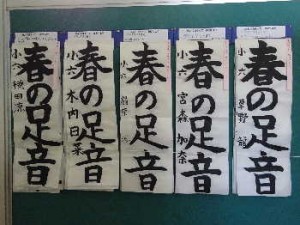 春の足音
小六 草野
春の足音
小六 宮森加奈
春の足音
小六
春の足音
小六 木内日菜
春の足音
小六 横田涼